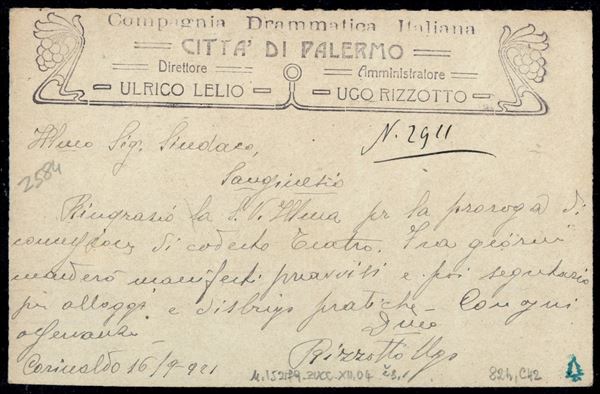 Compagnia Drammatica Italiana
CITTA' DI PALERMO
Direttore
Amministratore
ULRICO LELIO
UGO RIZZOTTO
N. 2911
Illmo Sig. Sindaco,
2584
Sanginesio
Ringrazio la S. V. Illma pr la proroga di
concessione di codesto Teatro. Fra giorni
manderò manifesti preavvisi e poi segretario
per alloggi e disbrigo pratiche - Con ogni
osservanza.
Dmo
Rizzotto Ugo
Corinaldo 16/9-921